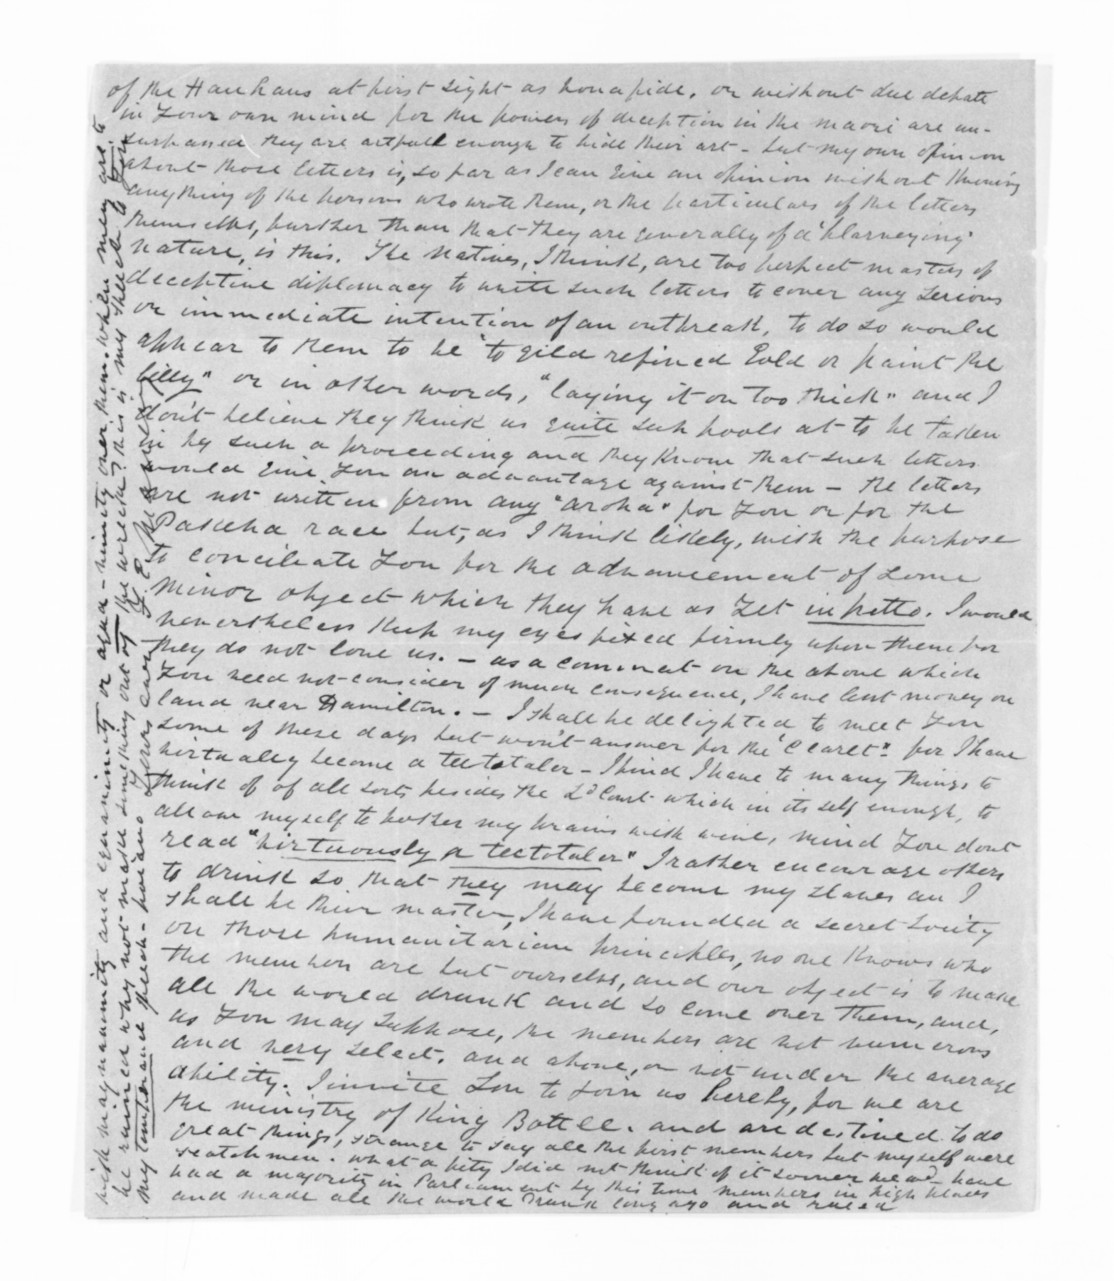 of the Hauhaus at first sight as bonafide, or without due debate
in your own mind for the powers of deception in the maori are un-
surpassed they are artfull enough to hide their art - but my own opinion
about those letters is, so far as I can give an opinion without knowing
anything of the persons who wrote them, or the particulars of the letters
themselves, further than that they are generally of a "blarneying"
nature, is this. The Natives, I think, are too perfect masters of
deceptive diplomacy to write such letters to cover any serious
or immediate intention of an outbreak, to do so would
appear to them to be "to gild refined gold or paint the
lilly" or in other words, "laying it on too thick" and I
don't believe they think us quite such fools as to be taken
in by such a proceeding and they know that such letters
would give you an advantage against them - the letters
are not written from any "aroha" for you or for the
Pakeha race but, as I think likely, with the purpose
to conciliate you for the advancement of some
minor object which they have as yet in petto. I would
nevertheless keep my eyes fixed firmly upon them for
they do not love us. - as a comment on the above which
you need not consider of much consequence, I have lent money on
land near Hamilton. - I shall be delighted to meet you
some of these days but won't answer for the "Claret" for I have
virtually become a teetotaler - I find I have to many things to
think of of all sorts besides the Ld Court which in its self enough, to
allow myself to bother my brains with wine, mind you dont
read "virtuously a teetotaler" I rather encourage others
to drink so that they may become my slaves an I
shall be their master, I have founded a secret soc'ity
on those humanitarian principles, no one knows who
the members are but ourselves, and our object is to make
all the world drunk and so come over them, and,
as you may suppose, the members are not numerous
and very select. and above, or not under the average
ability. I invite you to join us hereby, for we are
the ministry of King Bottle. and are destined to do
great things, strange to say all the first members but myself were
scotchmen. what a pity I did not think of it sooner we wd have
had a majority in Parliament by this time members in high places
and made all the world drunk long ago and ruled
with magnanimity and equanimity or aqua-nimity over them. when men are to
be ruined why not make something out of the wreck? this is my speech to you
my temperance speech-
Yours ever F. E. Maning